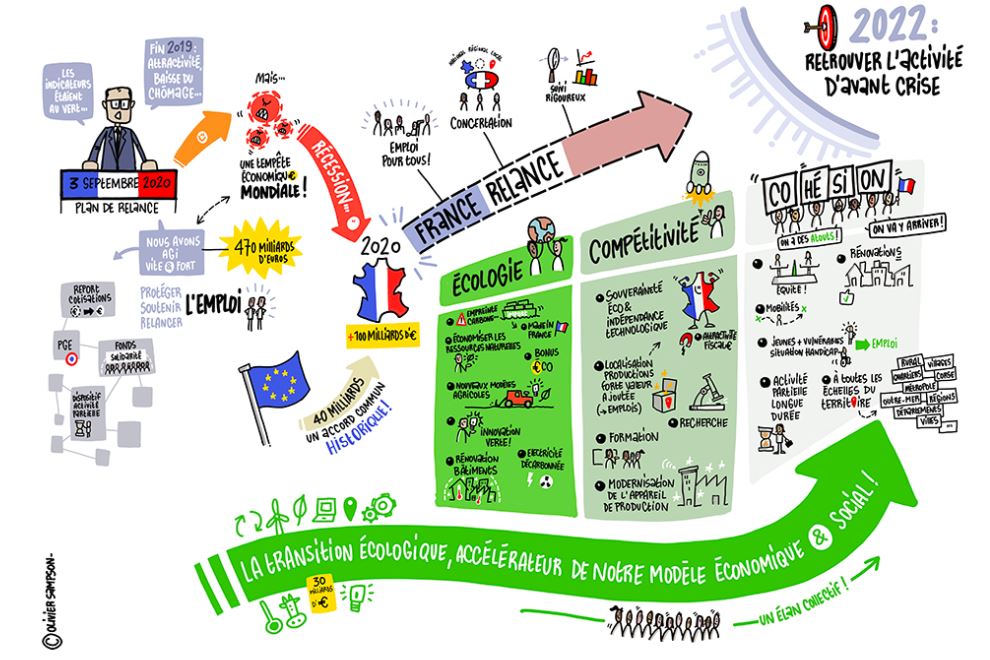 LES
INDICATEURS
ÉTAIENT
AU VERT...
FIN 2019:
ATTRACTIVITÉ,
BAISSE DU
CHÔMAGE...
3 SEPTEMBRE 2020
PLAN DE RELANCE
MAIS...
UNE TEMPÊTE
ÉCONOMIQU€
MONDIALE !
RÉCESSION...
NOUS AVONS
AGI
VITE & FORT
470 MILLIARDS
D'EUROS
PROTÉGER
SOUTENIR
RELANCER
L'EMPLOI
REPORT
COTISATIONS
€ → €
PGE
FONDS
SOLIDARITÉ
DISPOSITIF
ACTIVITÉ
PARTIELLE
2020
+100 MILLIARDS D'€
40 MILLIARDS
UN ACCORD COMMUN
HISTORIQUE !
FRANCE RELANCE
EMPLOI
POUR TOUS !
NATIONAL RÉGIONAL LOCAL
CONCERTATION
SUIVI
RIGOUREUX
2022:
RETROUVER L'ACTIVITÉ
D'AVANT CRISE
ÉCOLOGIE
EMPREINTE
CARBONE-
MADE IN
FRANCE
ÉCONOMISER LES
RESSOURCES NATURELLES
BONUS
€CO
NOUVEAUX MODÈLES
AGRICOLES
INNOVATION
VERTE !
RÉNOVATION
BÂTIMENTS
ELECTRICITÉ
DÉCARBONNÉE
COMPÉTITIVITÉ
SOUVERAINETÉ
ÉCO &
INDÉPENDANCE
TECHNOLOGIQUE
ATTRACTIVITÉ
FISCALE
LOCALISATION
PRODUCTIONS
FORTE VALEURS
AJOUTÉE
(→ EMPLOIS)
RECHERCHE
FORMATION
MODERNISATION
DE L'APPAREIL
DE PRODUCTION
COHÉSION
ON A DES ATOUTS !
ON VA Y ARRIVER !
ÉQUITÉ !
RÉNOVATIONS
MOBILITÉS
JEUNES + VULNÉRABLES
SITUATION HANDICAP
EMPLOI
ACTIVITÉ
PARTIELLE
LONGUE
DURÉE
À TOUTES LES
ÉCHELLES DU
TERRITOIRE
RURAL
VIRAGES
QUARTIERS
CORSE
MÉTROPOLE
OUTRE-MER
RÉGIONS
DÉPARTEMENTS
VILLES
...
LA TRANSITION ÉCOLOGIQUE, ACCÉLÉRATEUR DE NOTRE MODÈLE ÉCONOMIQUE & SOCIAL !
30
MILLIARDS
D'€
UN ÉLAN COLLECTIF !
© OLIVIER SAMPSON-